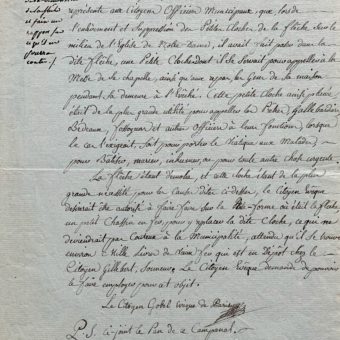 représente aux Citoyens Officiers Municipaux que lors de
l'enlèvement et Suppression des Petites Cloches de la flèche, sur le
milieu de l'Eglise de Notre Dame, il avait été placé dans la
dite flèche, une Petite Cloche dont il se servait pour appeller à la
Messe de la chapelle, ainsi qu'aux repas, les Gens de sa maison
pendant sa demeure à l'Evêché. Cette petite cloche ainsi placée
était de la plus grande utilité pour appeller les Prêtres,
Bedeaux, fossoyeurs et autres Officiers à leur fonction, lorsque
le cas l'exigeait, soit pour porter le Viatique aux Malades
pour Batêmes, mariages, inhumer, ou pour toute autre chose urgente.
La flèche étant démolie, et cette cloche étant de la plus
grande nécessité pour la Cause dite ci-dessus, le Citoyen Evêque
désirerait être autorisé à faire faire sur la Plate-forme où était la flèche
un petit Chassis en fer, pour y replacer la dite Cloche, ce qui ne
deviendrait pas Couteux à la Municipalité, attendu qu'il se trouve
environ Mille Livres de vieux fer qui est en Dépôt chez le
Citoyen Gilbert, Sonneur. Le Citoyen Evêque demande de pouvoir
le faire employer pour cet objet.
Le Citoyen Gobel Evêque de Paris
P.S. ci-joint le Plan de ce Campanat.